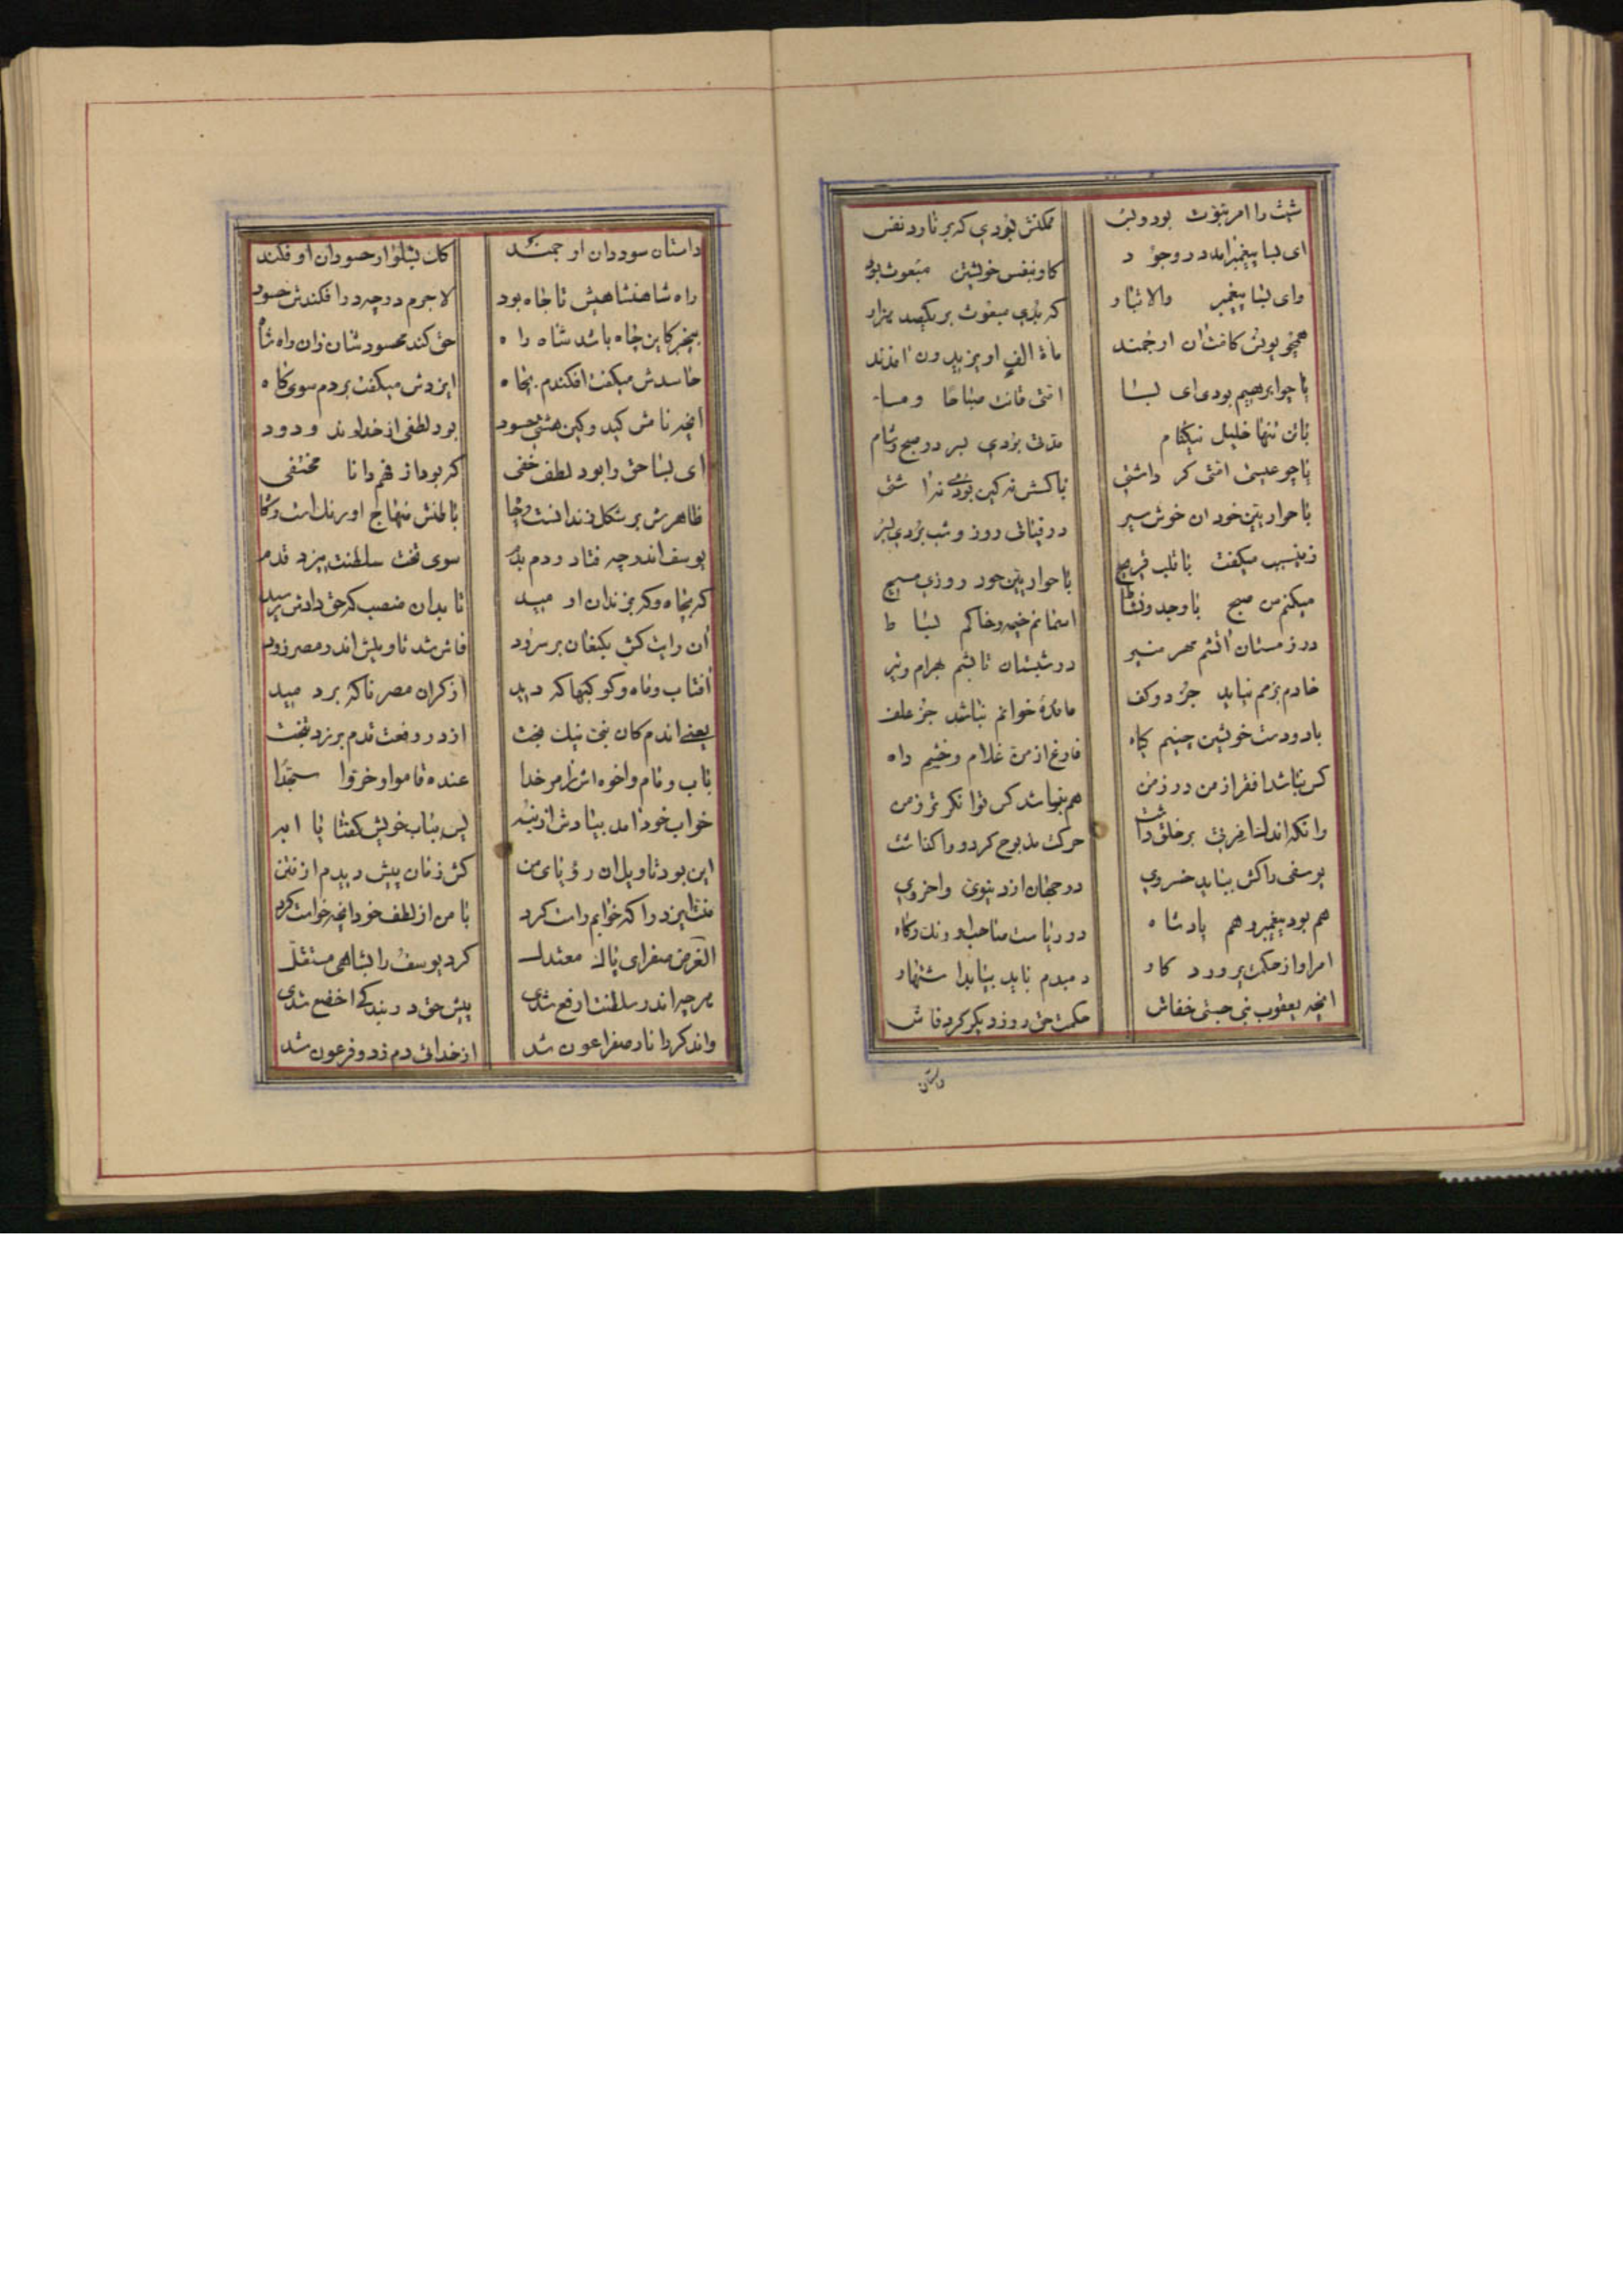 شیث را امر نبوت بود و لیک ممکنش نبودی که بر تارد نفس
ای بسا پیغمبر آمد در وجود کاو بنفس خویشتن مبعوث بود
وای بسا پیغمبر والا تبار که بدی مبعوث بر یکصد هزار
همچو یونس کامتان ارجمند مائة الف او یزیدون آمدند
یا چو ابرهیم بودی ای بسا امتی قانت صباحا و مسا
باتن تنها خلیل نیکنام مدتی بردی بسر در صبح و شام
یا چو عیسی امتی کر داشتی
با حواریین خود آن خوش سیر در فیافی روز و شب بردی بسر
زینسبب میگفت با قلب قریح با حواریین خود روزی مسیح
میکنم من صبح با وجد و نشاط اسمانم خیمه و خاکم بساط
در زمستان آتشم مهر منیر در شبستان تابشم بهرام و تیر
خادم بزمم نیاید جز دو کف مائده خوانم نباشد جز علف
بادو دست خویشین چینم کیاه فارغ از من غلام و خشم راه
کس نباشد افقر از من در زمن هم نباشد کس توانکرتر ز من
وانکه اندلخافرینی بر خلق داشت حرکت مذبوح کرد و واکذاشت
یوسفی را کش بباید خسروی در جهان از دنیوی و اخروی
هم بود پیغمبر و هم پادشاه در ریاست صاحب اورنک و کاه
امر او از حکمت پرورد کار دمبدم باید بیابد اشتهار
انچه یعقوب نبی جستی خفاش حکمت حق روز دیکر کرد فاش
داستان
داستان سودران ارجمند کلک بسلوار حسودان اوفکند
راه شاهنشاهیش تا چاه بود لاجرم در چه در افکندش حسود
بیخبر کاین چاه باشد شاه راه حق کند محسودشان زان راه شاه
حاسدش میکفت افکندم بچاه ایزدش میکفت بردم سوی کاه
انچه نامش کید و کین هشتی حسود بود لطفی از خداوند ودود
ای بسا حق را بود لطف خفی کر بود از فهم دانا مختفی
ظاهرش بر شکل زندانست و چا باطنش منهاج اورنک است و کا
یوسف اندر چه فتاد و دم بدم سوی تخت سلطنت میزد قدم
کر بچاه و کر بزندان ارمید تا بدان منصب که حق دادش رسید
آن رایت کش بکنعان بر سرود فاش شد تاویلش اندر مصر زود
آفتاب و ماه و کوکبها که دید از کران مصر ناکه بردمید
یعنی اندم کان نبی نیک بخت از در رفعت قدم برزد بتخت
باب و مام و اخوه اش ز امر خدا عنده قاموا و خروا سجدا
خواب خود امد بیادش از نبه پس بباب خویش کفتا یا ابه
این بود تاویل ان رؤیای من کش زمان پیش دیدم از فتن
منت ایزد را که خوابم راست کرد با من از لطف خود انچه خواست کرد
الغرض صفرای پاک معتدل کرد یوسف را بشاهی مستقل
هر چه اندر سلطنت ارفع شدی پیش حق در بندکی اخضع شدی
واندکر را نار صفرا عون شد از خدائی دم زد و فرعون شد